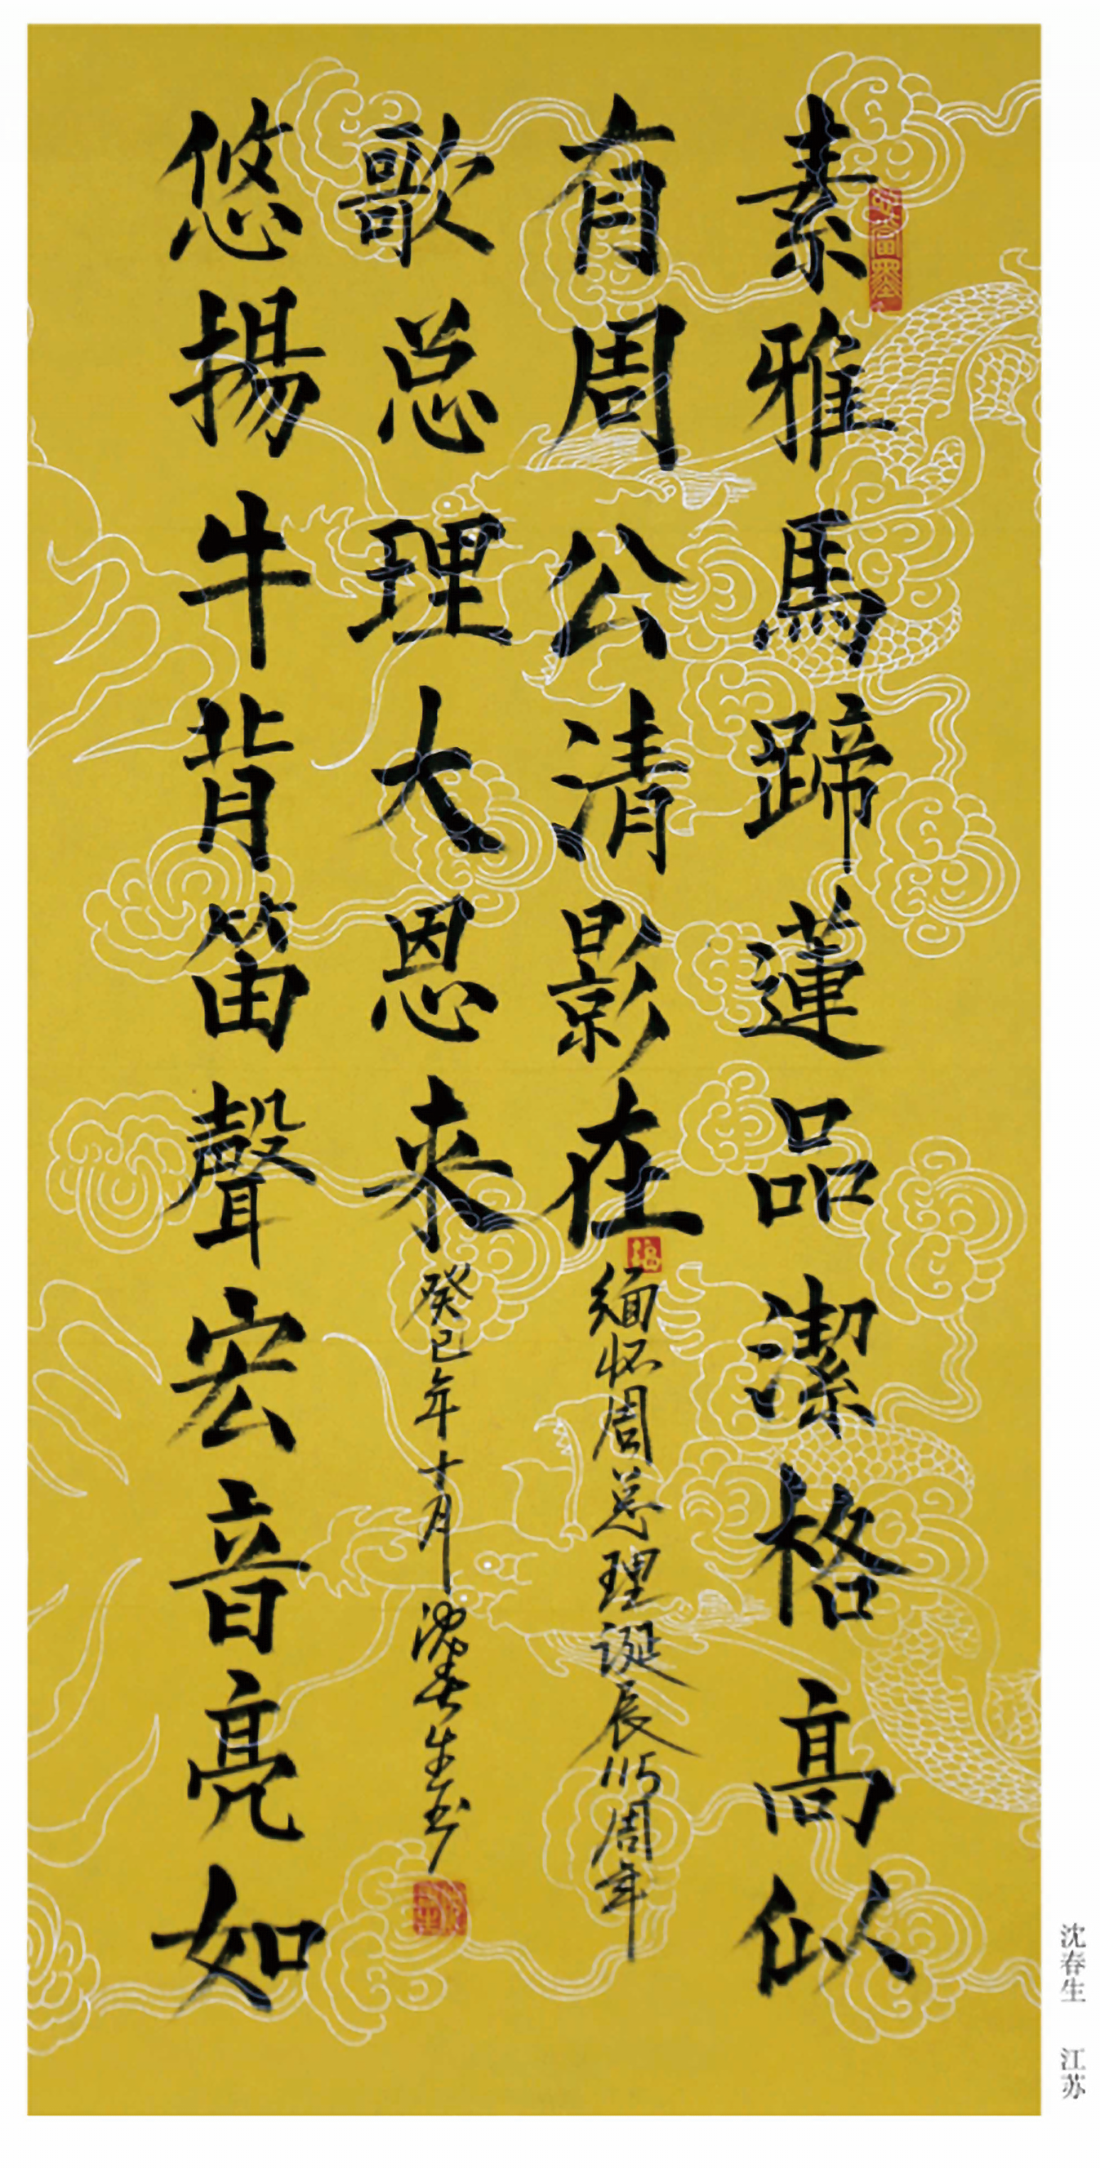 素雅馬蹄蓮品潔格高似
有周公清影在
缅怀周总理诞辰115周年
悠揚牛背笛聲宏音亮如
歌总理大恩来
癸巳年十月 沈春生书
沈春生 江苏